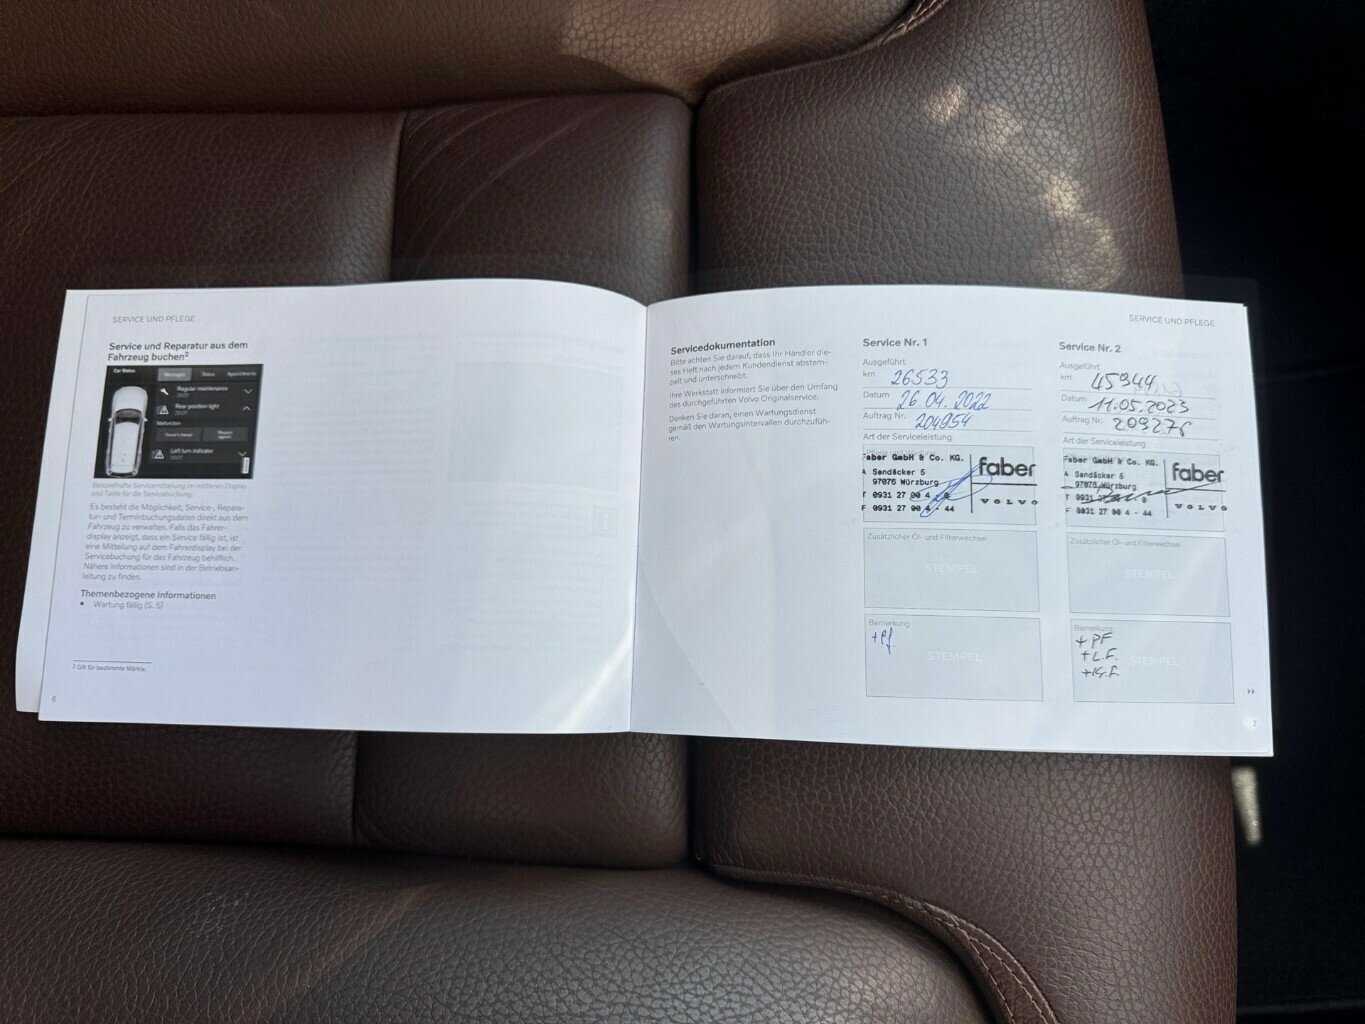 SERVICE UND PFLEGE
Service und Reparatur aus dem
Fahrzeug buchen²
Car Status
Messages
Status
Appointments
Regular maintenance
Rear position light
Malfunction
Left turn indicator
Beispielhafte Servicemitteilung im mittleren Display
und Taste für die Servicebuchung.
Es besteht die Möglichkeit, Service-, Repara-
tur- und Terminbuchungsdaten direkt aus dem
Fahrzeug zu verwalten. Falls das Fahrer-
display anzeigt, dass ein Service fällig ist, ist
eine Mitteilung auf dem Fahrerdisplay bei der
Servicebuchung für das Fahrzeug behilflich.
Nähere Informationen sind in der Betriebsan-
leitung zu finden.
Themenbezogene Informationen
• Wartung fällig (S. 5)
2 Gilt für bestimmte Märkte.
6
SERVICE UND PFLEGE
Servicedokumentation
Bitte achten Sie darauf, dass Ihr Händler die-
ses Heft nach jedem Kundendienst abstem-
pelt und unterschreibt.
Ihre Werkstatt informiert Sie über den Umfang
des durchgeführten Volvo Originalservice.
Denken Sie daran, einen Wartungsdienst
gemäß den Wartungsintervallen durchzufüh-
ren.
Service Nr. 1
Ausgeführt
km 26533
Datum 26.04.2022
Auftrag Nr. 204954
Art der Serviceleistung
Faber GmbH & Co. KG.
A Sandäcker 5
97076 Würzburg
T 0931 27 00 4 - 0
F 0931 27 00 4 - 44
faber
VOLVO
Zusätzlicher Öl- und Filterwechsel
STEMPEL
Bemerkung
+Pf
STEMPEL
Service Nr. 2
Ausgeführt
km 45944
Datum 11.05.2023
Auftrag Nr. 209276
Art der Serviceleistung
Faber GmbH & Co. KG.
A Sandäcker 5
97076 Würzburg
T 0931 27 00 4 - 0
F 0931 27 00 4 - 44
faber
VOLVO
Zusätzlicher Öl- und Filterwechsel
STEMPEL
Bemerkung
+PF
+L.F.
STEMPEL
7